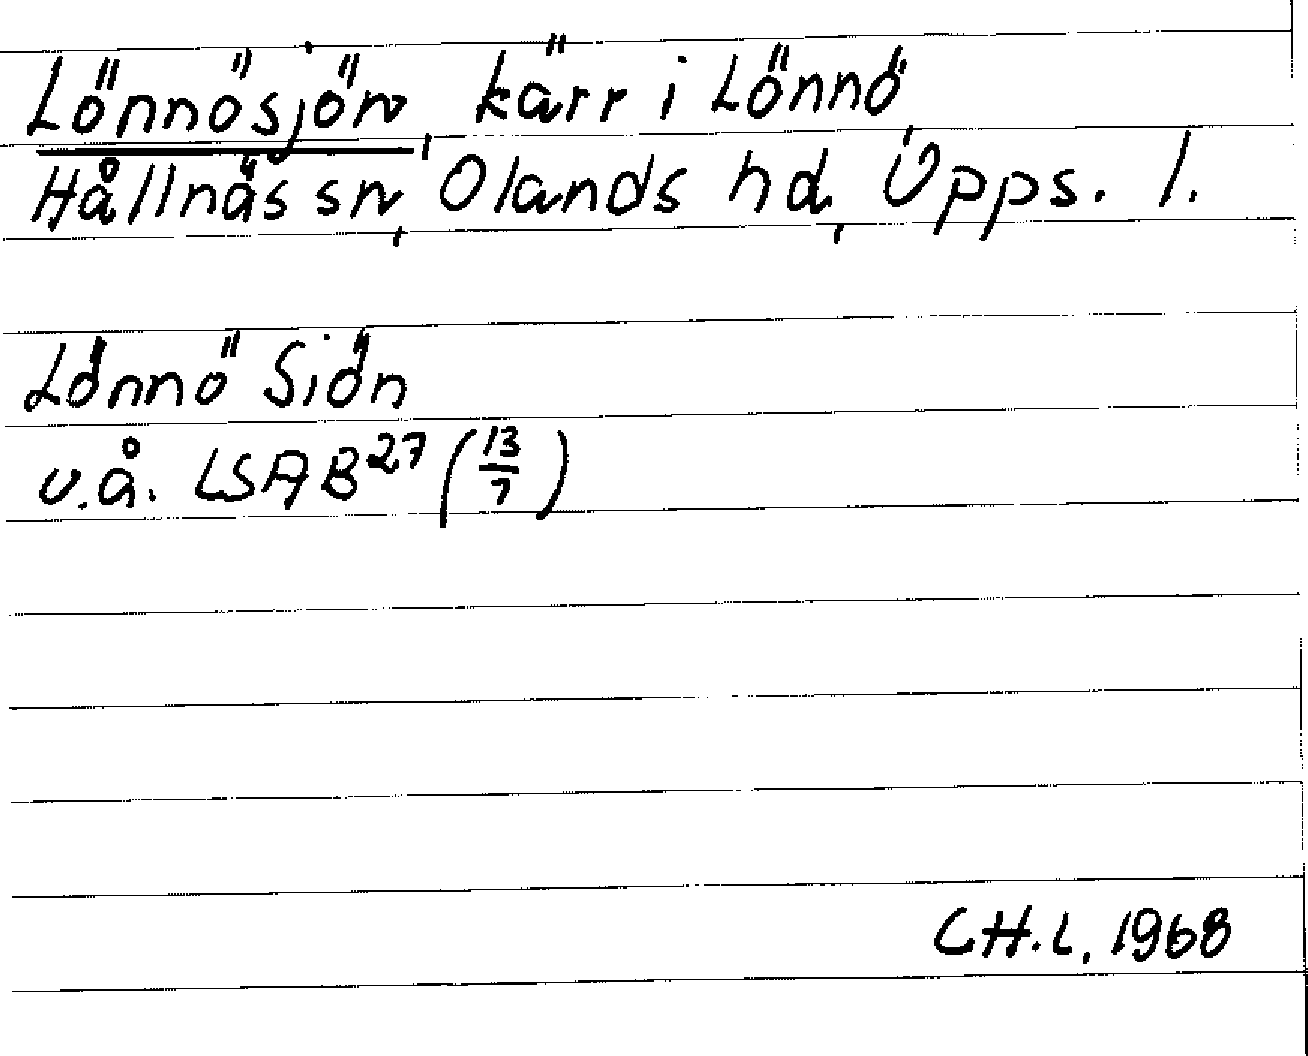 Lönnösjön, kärr i Lönnö,
Hållnäs sn, Olands hd, Upps. l.
Lönnö Siön
u.å. LSA B27 (13/7)
CH.L. 1968